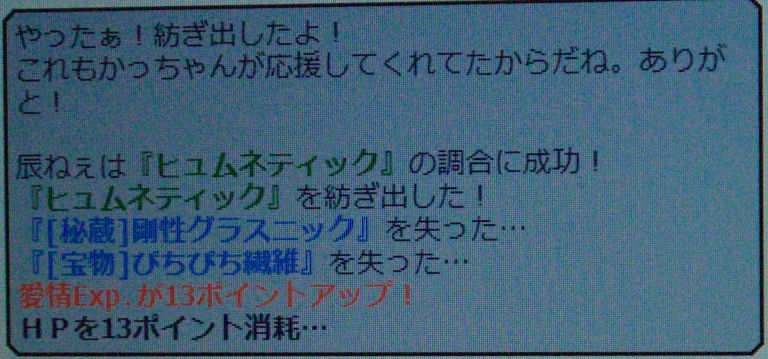 やったぁ！紡ぎ出したよ！
これもかっちゃんが応援してくれてたからだね。ありが
と！
辰ねぇは『ヒュムネティック』の調合に成功！
『ヒュムネティック』を紡ぎ出した！
『[秘蔵]剛性グラスニック』を失った…
『[宝物]ぴちぴち繊維』を失った…
愛情Exp.が13ポイントアップ！
ＨＰを13ポイント消耗…